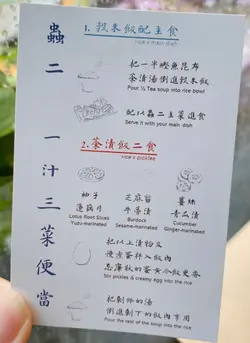 蟲二 一汁三菜便當
1. 穀米飯配主食
rice x main dish
把一半鰹魚昆布
茶漬湯倒進穀米飯
Pour ½ Tea soup into rice bowl
配以蟲二主菜進食
Serve it with your main dish
2. 茶漬飯二食
rice x pickles
柚子
蓮藕片
Lotus Root Slices
Yuzu-marinated
芝麻醬
牛蒡漬
Burdock
Sesame-marinated
薑絲
青瓜漬
Cucumber
Ginger-marinated
把以上漬物及
慢煮蛋拌入飯內
Stir pickles & creamy egg into the rice
把剩餘的湯
倒進剩下的飯內享用
Pour the rest of the soup into the rice